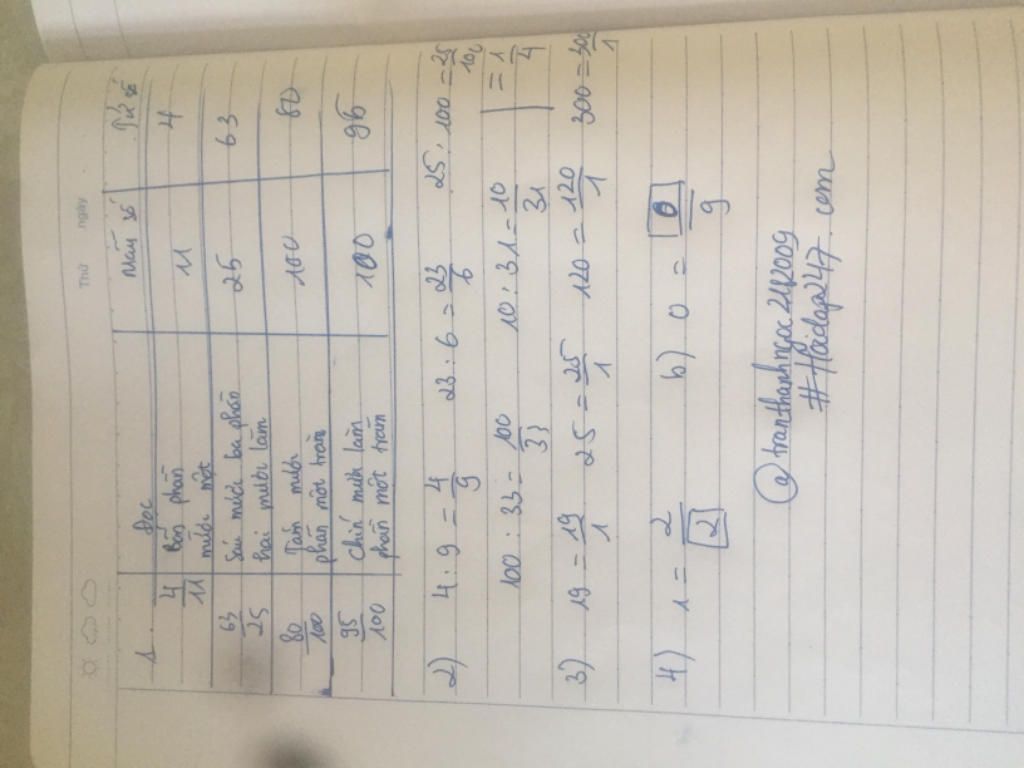 Thứ ngày
1 Đọc Mẫu số Tử số
4/11 Bốn phần mười một 11 4
63/25 Sáu mươi ba phần hai mươi lăm 25 63
80/100 Tám mươi phần một trăm 100 80
95/100 Chín mươi lăm phần một trăm 100 95
2) 4 : 9 = 4/9 23 : 6 = 23/6 25 : 100 = 25/100 = 1/4
100 : 33 = 100/33 10 : 31 = 10/31
3) 19 = 19/1 25 = 25/1 120 = 120/1 300 = 300/1
4) 1 = 2/2 b) 0 = 0/9
#Hoidap247.com